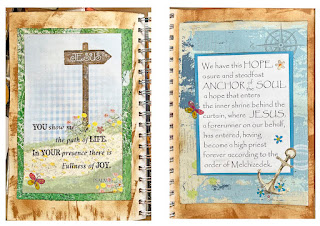 JESUS
YOU show me
the path of LIFE.
In YOUR presence there is
Fullness of JOY.
We have this HOPE,
a sure and steadfast
ANCHOR of the SOUL,
a hope that enters
the inner shrine behind the
curtain, where JESUS,
a forerunner on our behalf,
has entered, having
become a high priest
forever according to the
order of Melchizedek.